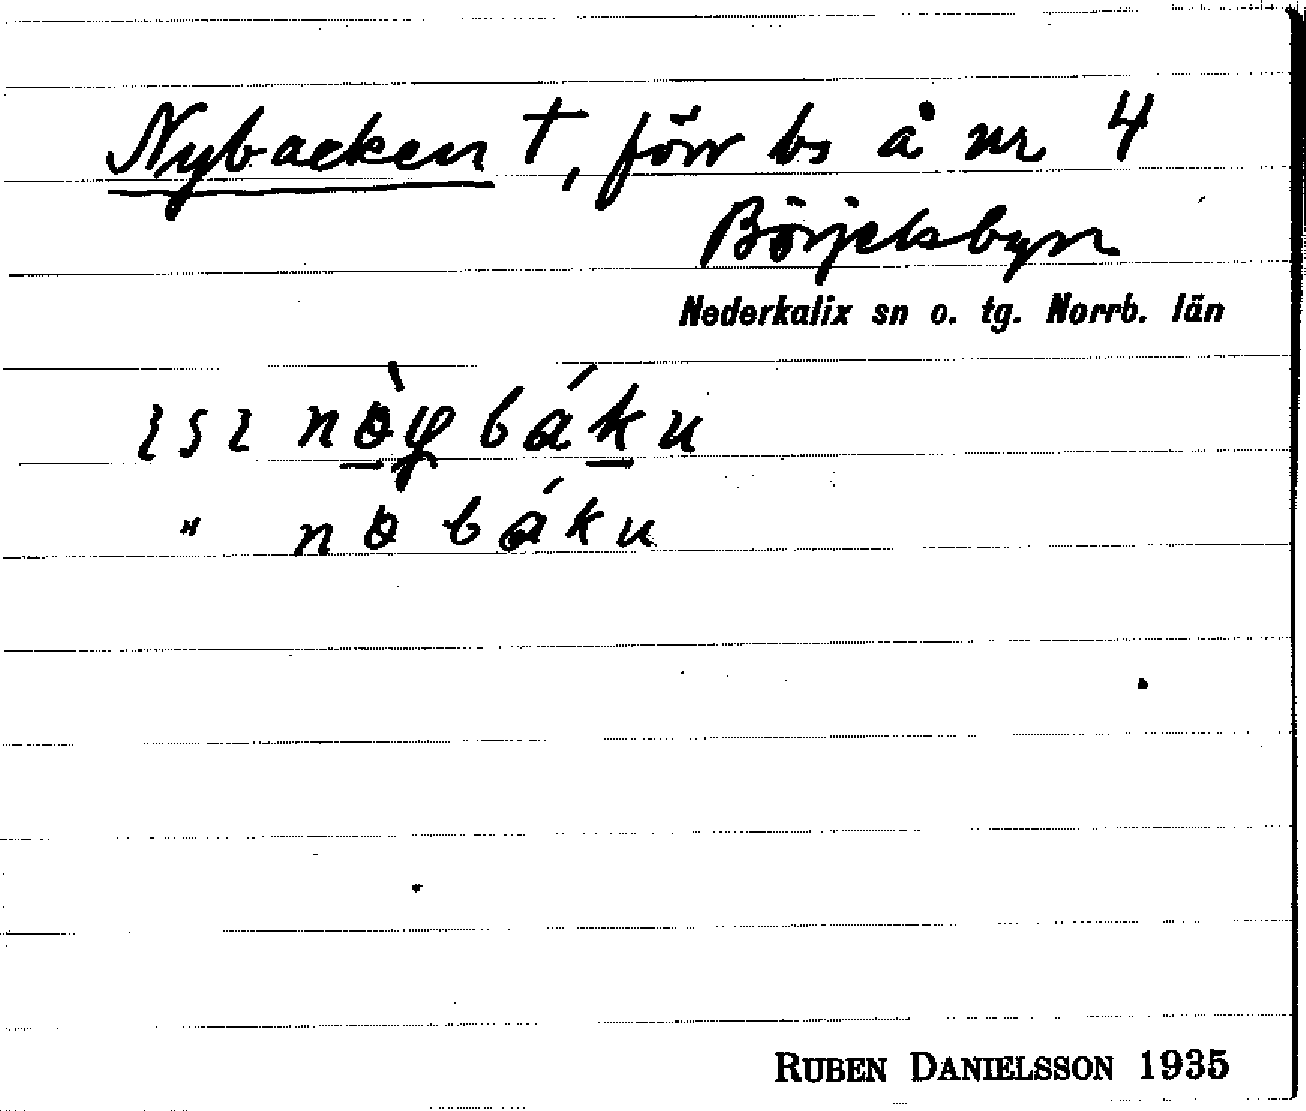 Nybacken †, förr bs å nr 4
Börjelsbyn
Nederkalix sn o. tg. Norrb. län
báku
" báku
RUBEN DANIELSSON 1935